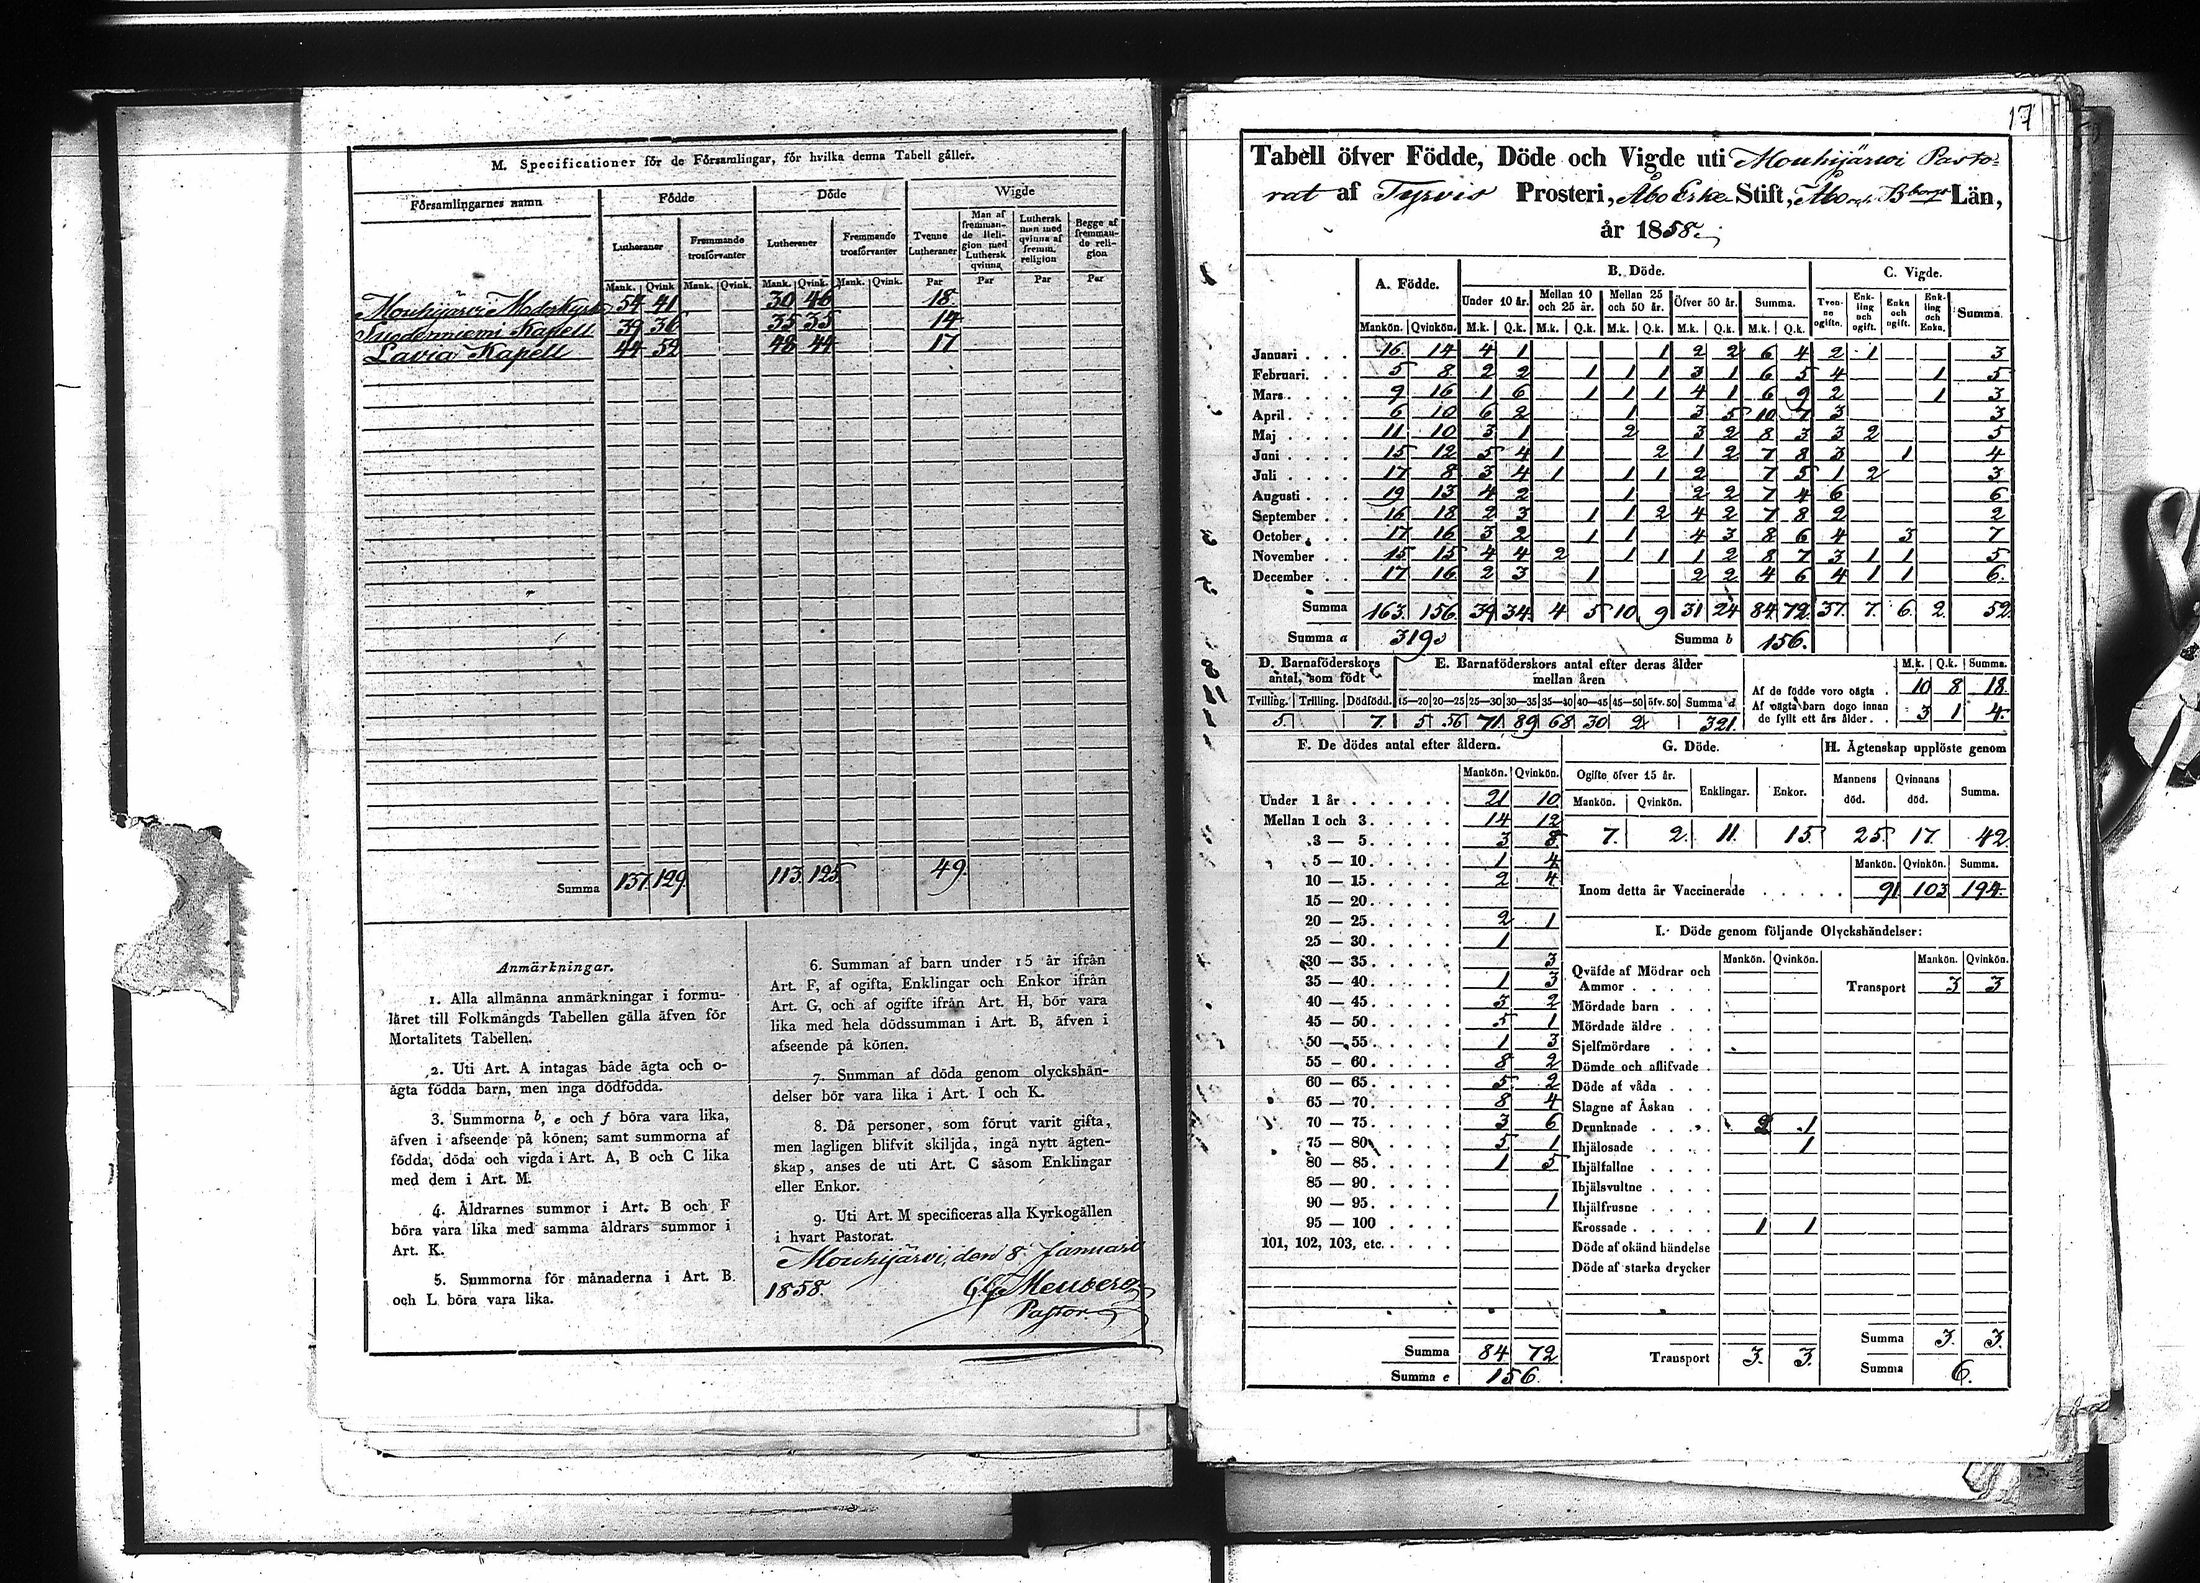 M. Specificationer för de Församlingar, för hvilka denna Tabell gäller.
Församlingarnes namn | Födde | Döde | Wigde
Lutheraner | Fremmande trosförvanter | Lutheraner | Fremmande trosförvanter | Tvenne Lutheraner | Man af fremmande Religion med Luthersk qvinna | Luthersk man med qvinna af fremm. religion | Begge af fremmande religion
Mank. | Qvink. | Mank. | Qvink. | Mank. | Qvink. | Mank. | Qvink. | Par | Par | Par | Par
Mouhijärvi Moderkyrk 54 41 30 46 18.
Suodenniemi Kapell 39 36 35 35 14
Lavia Kapell 44 52 48 44 17
Summa 137. 129. 113. 125. 49.
Anmärkningar.
1. Alla allmänna anmärkningar i formu-
läret till Folkmängds Tabellen gälla äfven för
Mortalitets Tabellen.
2. Uti Art. A intagas både ägta och o-
ägta födda barn, men inga dödfödda.
3. Summorna b, e och f böra vara lika,
äfven i afseende på könen; samt summorna af
födda, döda och vigda i Art. A, B och C lika
med dem i Art. M.
4. Åldrarnes summor i Art. B och F
böra vara lika med samma åldrars summor i
Art. K.
5. Summorna för månaderna i Art. B.
och L böra vara lika.
6. Summan af barn under 15 år ifrån
Art. F, af ogifta, Enklingar och Enkor ifrån
Art. G, och af ogifte ifrån Art. H, bör vara
lika med hela dödssumman i Art. B, äfven i
afseende på könen.
7. Summan af döda genom olyckshän-
delser bör vara lika i Art. I och K.
8. Då personer, som förut varit gifta,
men lagligen blifvit skiljda, ingå nytt ägten-
skap, anses de uti Art. C såsom Enklingar
eller Enkor.
9. Uti Art. M specificeras alla Kyrkogällen
i hvart Pastorat.
Mouhijärvi, den 8. Januari
1858.
Pastor.
17
Tabell öfver Födde, Döde och Vigde uti Mouhijärvi Pasto-
rat af Tyrvis Prosteri, Åbo Erke Stift, Åbo och Bborgs Län,
år 1858.
A. Födde. | B. Döde. | C. Vigde.
Under 10 år. | Mellan 10 och 25 år. | Mellan 25 och 50 år. | Öfver 50 år. | Summa. | Tvenne ogifte. | Enkling och ogift. | Enka och ogift. | Enkling och Enka. | Summa.
Mankön. | Qvinkön. | M.k. | Q.k. | M.k. | Q.k. | M.k. | Q.k. | M.k. | Q.k. | M.k. | Q.k.
Januari . . . 16. 14 4 1 1 2 2 6 4 2 1 3
Februari. . . 5 8 2 2 1 1 1 3 1 6 5 4 1 5
Mars . . . . 9 16 1 6 1 1 1 4 1 6 9 2 1 3
April . . . . 6 10 6 2 1 3 5 10 7 3 3
Maj . . . . 11 10 3 1 2 3 2 8 3 3 2 5
Juni . . . . 15 12 5 4 1 2 1 2 7 8 3 1 4
Juli . . . . 17 8 3 4 1 1 1 2 7 5 1 2 3
Augusti . . . 19 13 4 2 1 2 2 7 4 6 6
September . . 16 18 2 3 1 1 2 4 2 7 8 2 2
October . . . 17 16 3 2 1 1 4 3 8 6 4 3 7
November . . 15 15 4 4 2 1 1 1 2 8 7 3 1 1 5
December . . 17 16 2 3 1 2 2 4 6 4 1 1 6.
Summa 163. 156. 39 34. 4 5 10 9 31 24 84 72. 37. 7. 6. 2. 52.
Summa a 319 Summa b 156.
D. Barnaföderskors antal, som födt | E. Barnaföderskors antal efter deras ålder mellan åren | M.k. | Q.k. | Summa.
Tvilling. | Trilling. | Dödfödd. | 15—20 | 20—25 | 25—30 | 30—35 | 35—40 | 40—45 | 45—50 | öfv. 50 | Summa d
5. 7. 5 56 71 89 68 30 2 321.
Af de födde voro oägta . 10 8 18.
Af oägta barn dogo innan
de fyllt ett års ålder . . 3 1 4.
F. De dödes antal efter åldern. | G. Döde. | H. Ägtenskap upplöste genom
Mankön. | Qvinkön.
Under 1 år . . . . . . 21 10
Mellan 1 och 3. . . . . 14 12
3 — 5. . . . . 3 8
5 — 10. . . . . 1 4
10 — 15. . . . . 2 4
15 — 20. . . . .
20 — 25. . . . . 2 1
25 — 30. . . . . 1
30 — 35. . . . . 3
35 — 40. . . . . 1 3
40 — 45. . . . . 3 2
45 — 50. . . . . 5 1
50 — 55. . . . . 1 3
55 — 60. . . . . 8 2
60 — 65. . . . . 5 2
65 — 70. . . . . 8 4
70 — 75. . . . . 3 6
75 — 80. . . . . 5 1
80 — 85. . . . . 1 5
85 — 90. . . . .
90 — 95. . . . . 1
95 — 100 . . . .
101, 102, 103, etc. . . . .
Summa 84 72
Summa e 156.
Ogifte öfver 15 år. | Enklingar. | Enkor. | Mannens död. | Qvinnans död. | Summa.
Mankön. | Qvinkön.
7. 2. 11. 15. 25 17. 42
Mankön. | Qvinkön. | Summa.
Inom detta år Vaccinerade . . . . . 91 103 194.
I. Döde genom följande Olyckshändelser:
Mankön. | Qvinkön. | Mankön. | Qvinkön.
Qväfde af Mödrar och
Ammor . . . . . Transport 3 3
Mördade barn . . .
Mördade äldre . . .
Sjelfmördare . . .
Dömde och aflifvade .
Döde af våda . . .
Slagne af Åskan . .
Drunknade . . . . 2 1
Ihjälosade . . . . 1
Ihjälfallne . . . .
Ihjälsvultne . . . .
Ihjälfrusne . . . .
Krossade . . . . . 1 1
Döde af okänd händelse
Döde af starka drycker
Summa 3. 3.
Transport 3. 3. Summa 6.